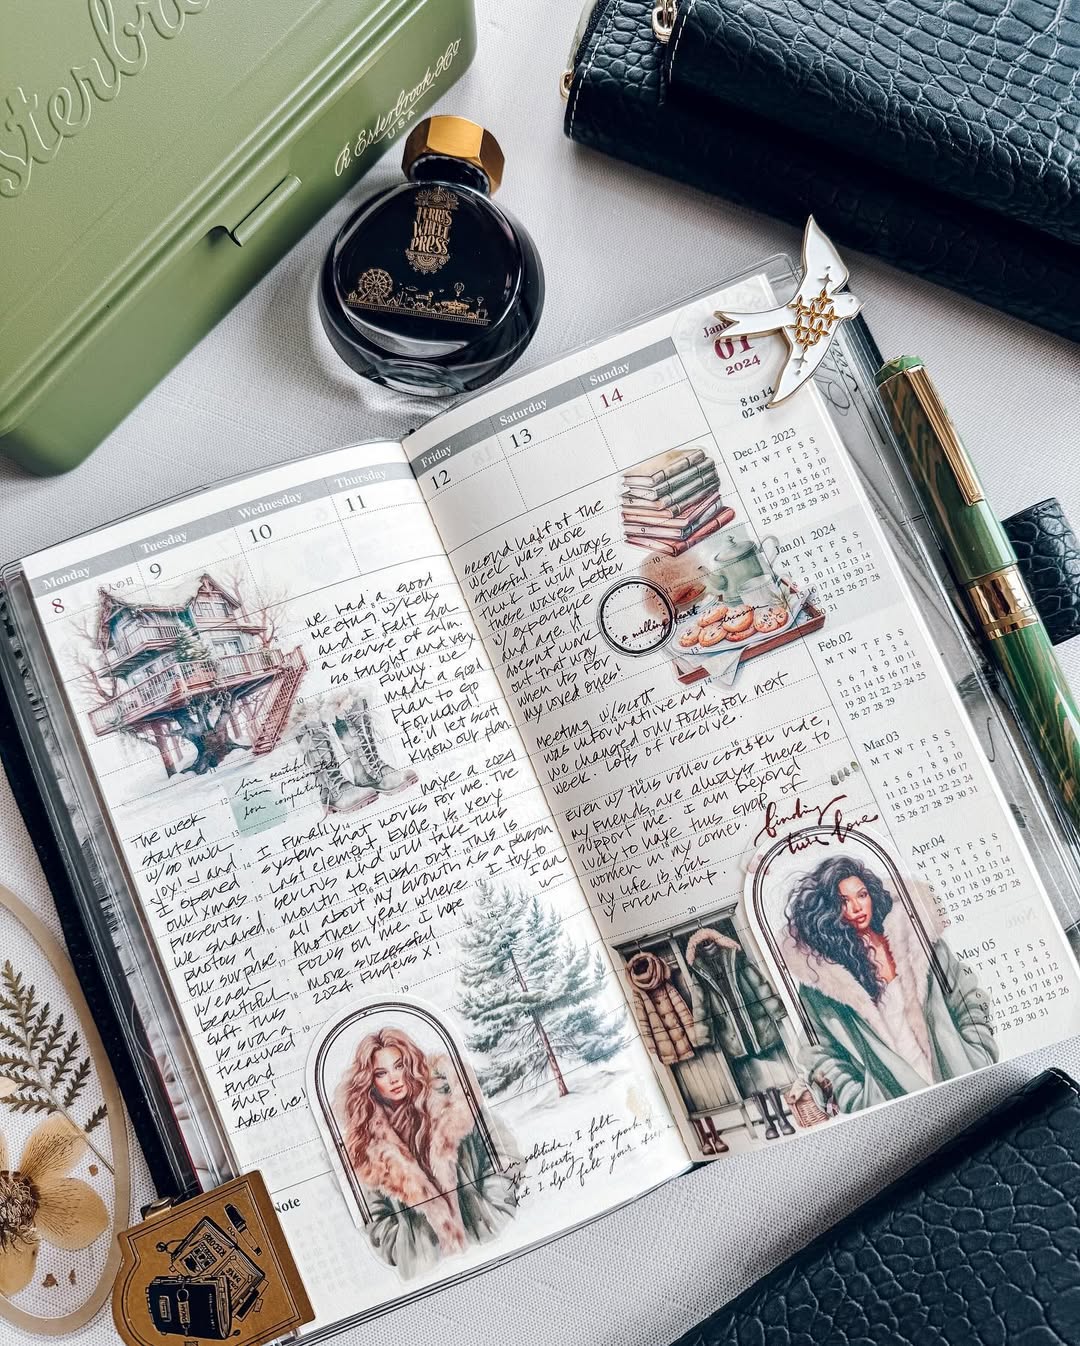 Esterbro
R. Esterbrook & Co
U.S.A
FERRIS
WHEEL
PRESS
Monday
8
Tuesday
9
Wednesday
10
Thursday
11
we had a good
meeting w/Kelly
and I felt
a sense of calm
made a good
plan to go
forward.
He'll let Scott
know our plan.
live beautifully
dream passionately
love completely
The week
started
w/so much
joy! J and
I opened
our xmas
presents
we shared
photos of
our surprise
w/each
beautiful
gift. this
is such a
treasured
friend
ship!
Adore her!
I finally have a 2024
system that works for me. The
last element, is very
serious and will take this
month to flush out. This is
all about my growth as a person
Another year where I try to
focus on me. I hope I am
more successful in
2024 fingers X!
in solitude, I felt
the liberty you spoke of
but I also felt your absence
Note
Friday
12
Saturday
13
Sunday
14
second half of the
week was more
stressful. I always
think I will ride
these waves better
w/ experience
and age. It
doesn't work
out that way
when its for
my loved ones!
a willing heart
Meeting w/Scott
was informative and
we changed our focus for next
week. Lots of resolve.
Even w/ this roller coaster ride,
my friends are always there to
support me. I am beyond
lucky to have this group of
women in my corner.
my life is rich
w/ friendship.
finding
true love
01
2024
8 to 14
Dec.12 2023
M T W T F S S
1 2 3
4 5 6 7 8 9 10
11 12 13 14 15 16 17
18 19 20 21 22 23 24
25 26 27 28 29 30 31
Jan.01 2024
M T W T F S S
1 2 3 4 5 6 7
8 9 10 11 12 13 14
15 16 17 18 19 20 21
22 23 24 25 26 27 28
29 30 31
Feb.02
M T W T F S S
1 2 3 4
5 6 7 8 9 10 11
12 13 14 15 16 17 18
19 20 21 22 23 24 25
26 27 28 29
Mar.03
M T W T F S S
1 2 3
4 5 6 7 8 9 10
11 12 13 14 15 16 17
18 19 20 21 22 23 24
25 26 27 28 29 30 31
Apr.04
M T W T F S S
May 05
M T W T F S S